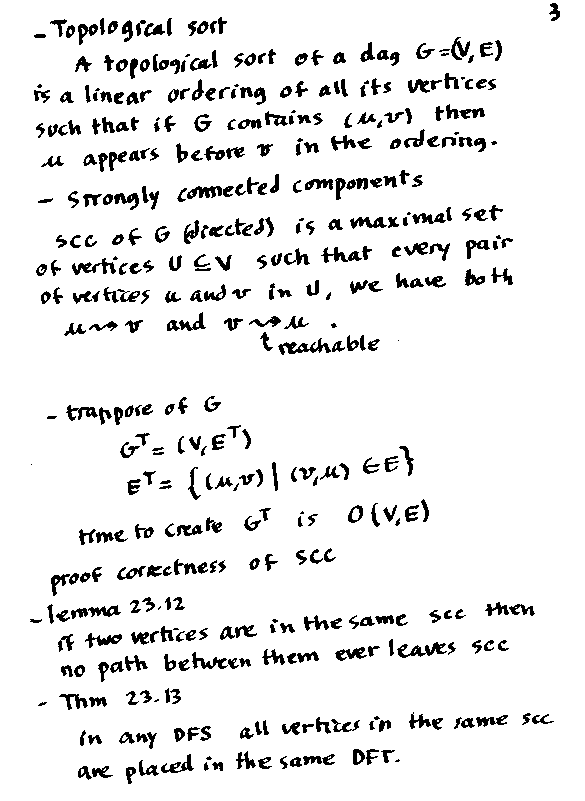 3
- Topological sort
A topological sort of a dag G=(V,E)
is a linear ordering of all its vertices
such that if G contains (u,v) then
u appears before v in the ordering.
- Strongly connected components
SCC of G (directed) is a maximal set
of vertices U ⊆ V such that every pair
of vertices u and v in U, we have both
u ⇝ v and v ⇝ u .
reachable
- transpose of G
Gᵀ = (V,Eᵀ)
Eᵀ = {(u,v) | (v,u) ∈ E}
time to create Gᵀ is O(V,E)
proof correctness of SCC
- lemma 23.12
if two vertices are in the same scc then
no path between them ever leaves scc
- Thm 23.13
in any DFS all vertices in the same scc
are placed in the same DFT.